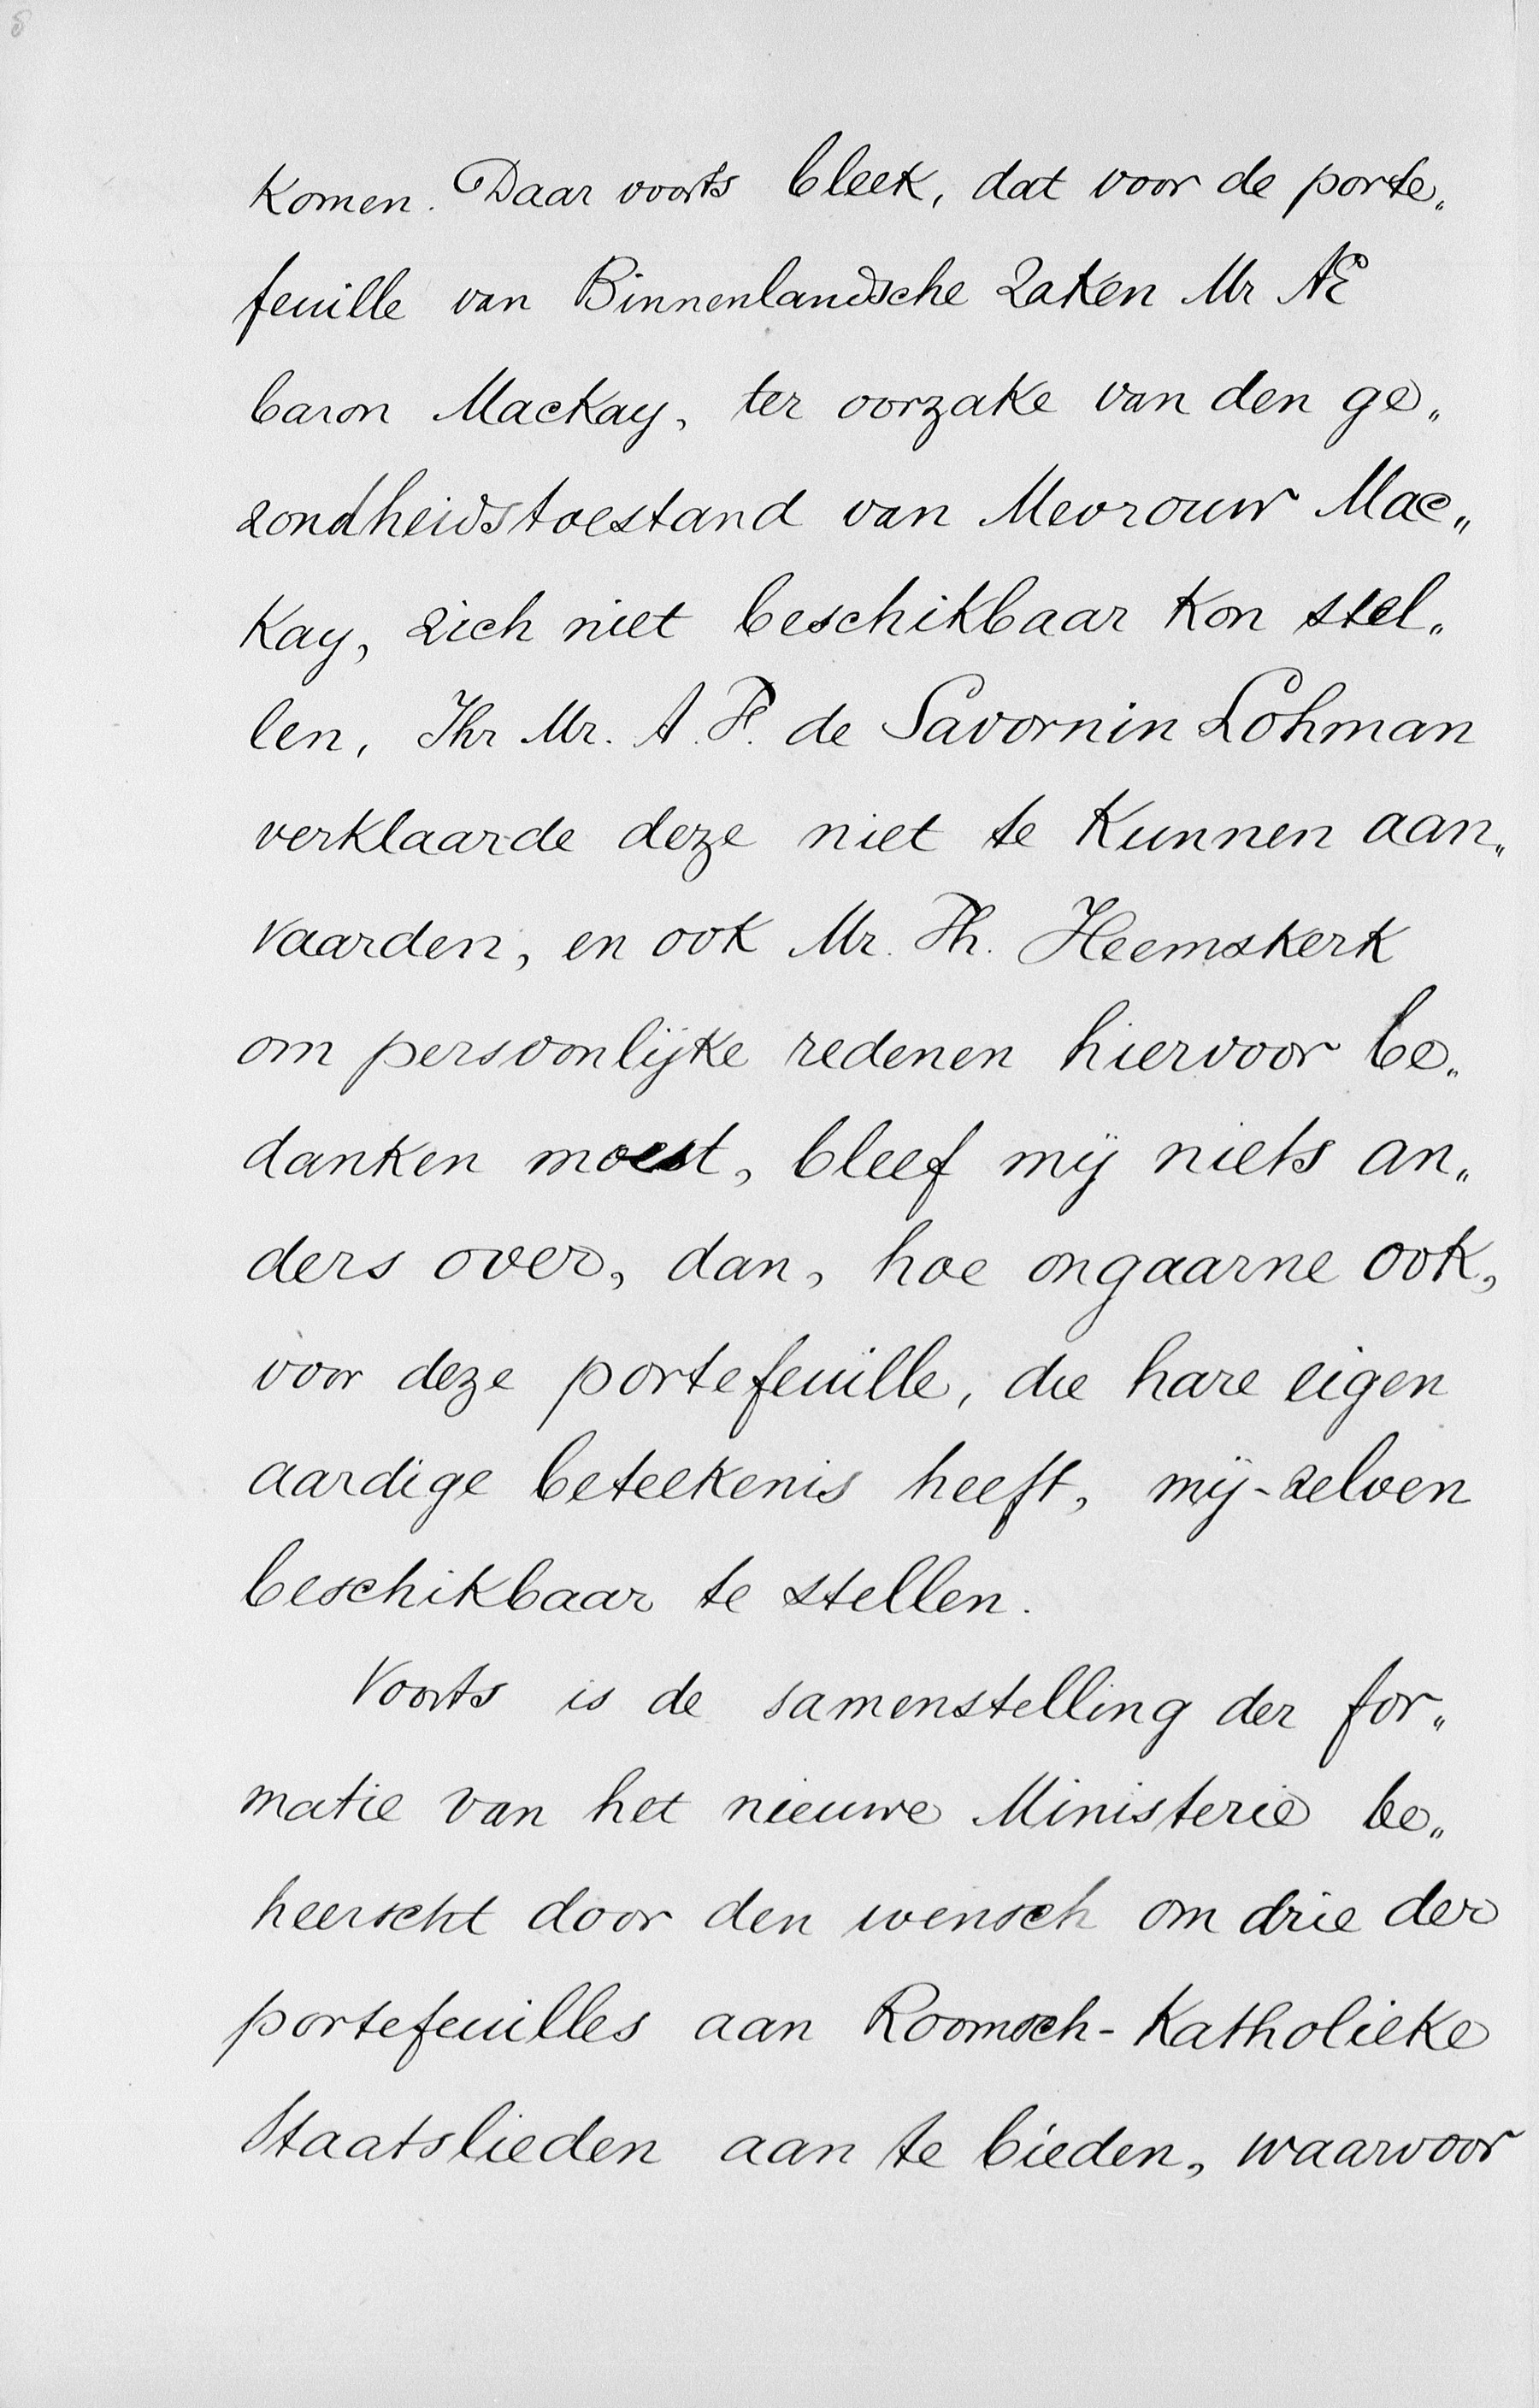 komen. Daar voorts bleek, dat voor de porte„
feuille van Binnenlandsche Zaken Mr Æ
baron Mackay, ter oorzake van den ge„
zondheidstoestand van Mevrouw Mac„
kay, zich niet beschikbaar kon stel„
len, Jhr Mr. A. F. de Savornin Lohman
verklaarde deze niet te kunnen aan„
vaarden, en ook Mr. Th. Heemskerk
om persoonlijke redenen hiervoor be„
danken moest, bleef mij niets an„
ders over, dan, hoe ongaarne ook,
voor deze portefeuille, die hare eigen
aardige beteekenis heeft, mij-zelven
beschikbaar te stellen.
Voorts is de samenstelling der for„
matie van het nieuwe Ministerie be„
heerscht door den wensch om drie der
portefeuilles aan Roomsch-Katholieke
Staatslieden aan te bieden, waarvoor